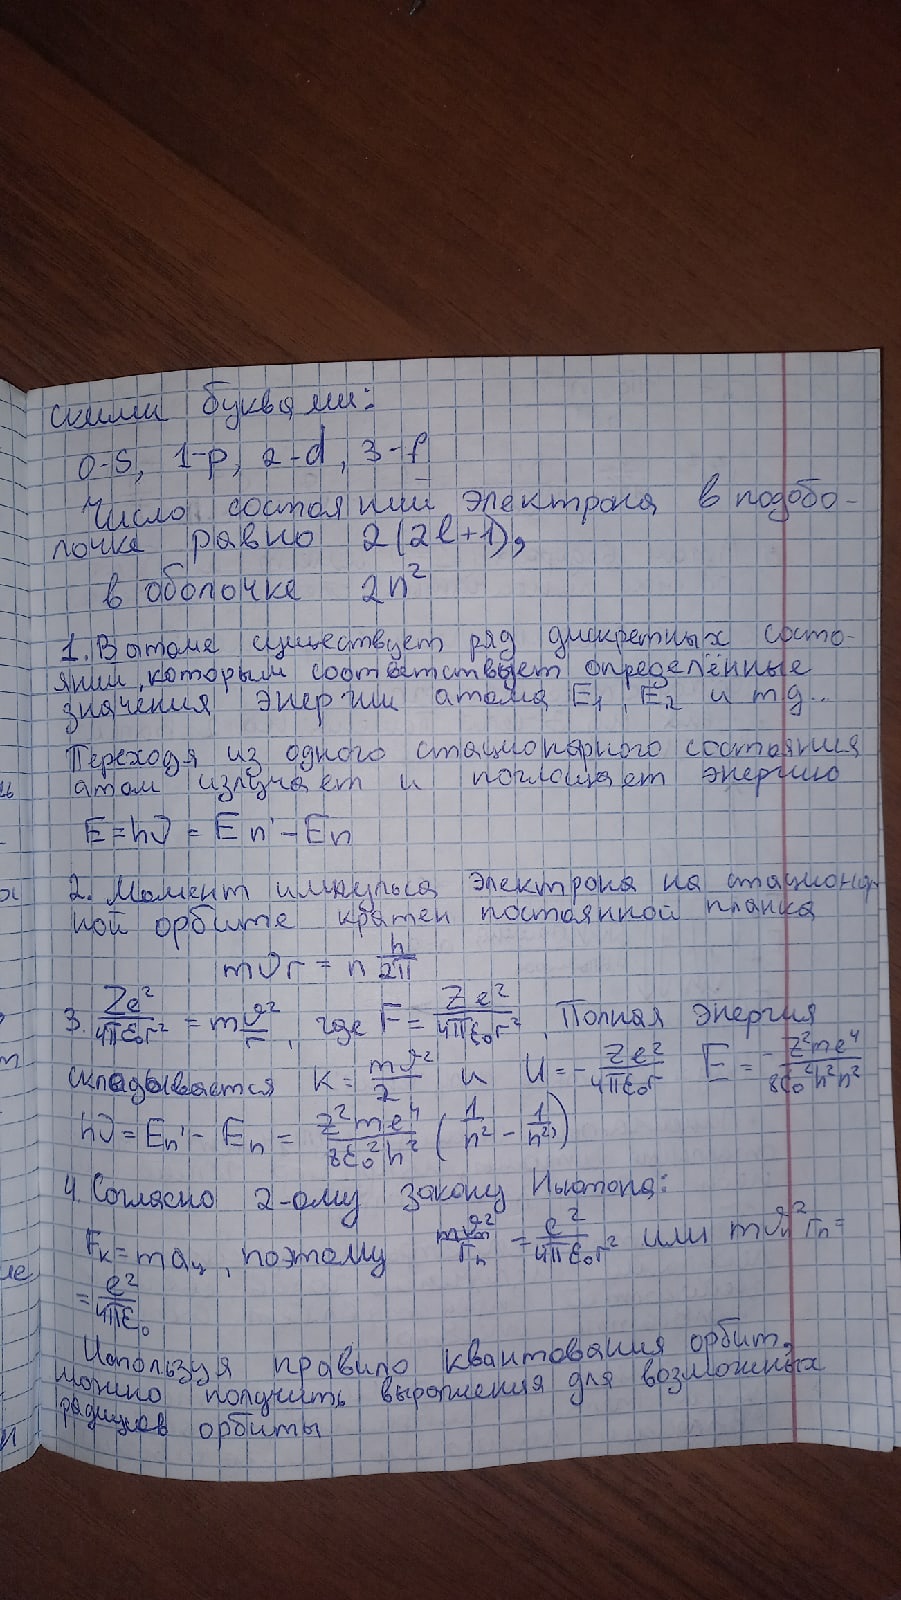 скими буквами:
0-s, 1-p, 2-d, 3-f
Число состояний электрона в подобо-
лочке равно 2(2l+1),
в оболочке 2n²
1. В атоме существует ряд дискретных состо-
яний, которым соответствует определённые
значения энергии атома E₁, E₂ и тд..
Переходя из одного стационарного состояния
атом излучает и поглощает энергию
E=hν = En' - En
2. Момент импульса электрона на стационар-
ной орбите кратен постоянной планка
mυr = n h/2π
3. Ze²/4πε₀r² = m υ²/r, где F = Ze²/4πε₀r². Полная энергия
складывается K = mυ²/2 и U = - Ze²/4πε₀r E = - Z²me⁴/8ε₀²h²n²
hν = En' - En = Z²me⁴/8ε₀²h² (1/n² - 1/n²')
4. Согласно 2-ому закону Ньютона:
Fк = maц, поэтому mυn²/rn = e²/4πε₀r² или mυn²rn =
= e²/4πε₀
Используя правило квантования орбит,
можно получить выражения для возможных
радиусов орбиты